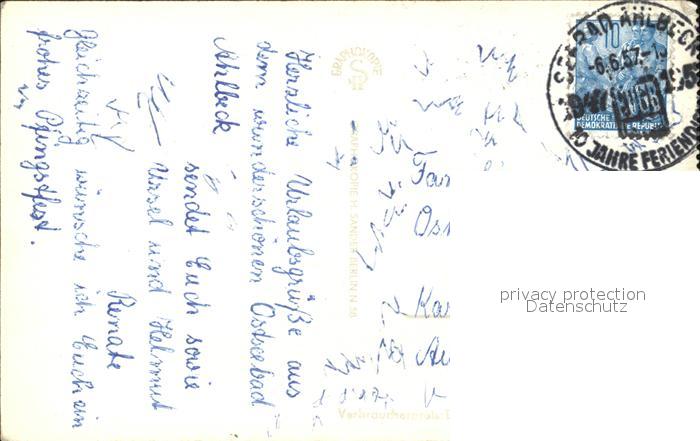 Herzliche Urlaubsgrüße aus
dem wunderschönen Ostseebad
Ahlbeck
sendet Euch sowie
Ursel und Helmut
Renate
Gleichzeitig wünsche ich Euch ein
frohes Pfingstfest.
GRAPHOKOPIE
GRAPHOKOPIE H. SANDER BERLIN N 58
Verbraucherpreis
SEEBAD AHLBECK
-6.6.57.-1
10 JAHRE FERIEN
10
DEUTSCHE
DEMOKRATISCHE REPUBLIK
Kar
privacy protection
Datenschutz